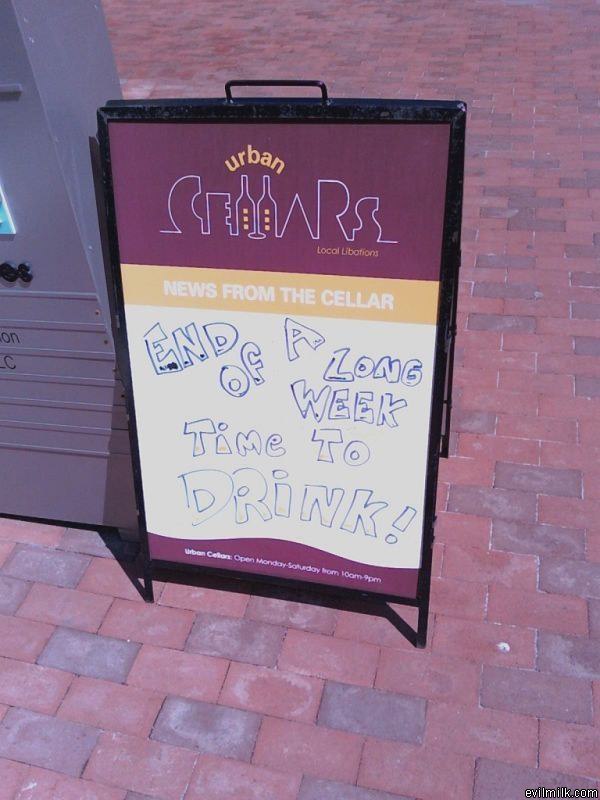 urban
CELLARS
Local Libations
NEWS FROM THE CELLAR
END OF A LONG
WEEK
TIME TO
DRINK!
Urban Cellars: Open Monday-Saturday from 10am-9pm
es
on
LC
evilmilk.com